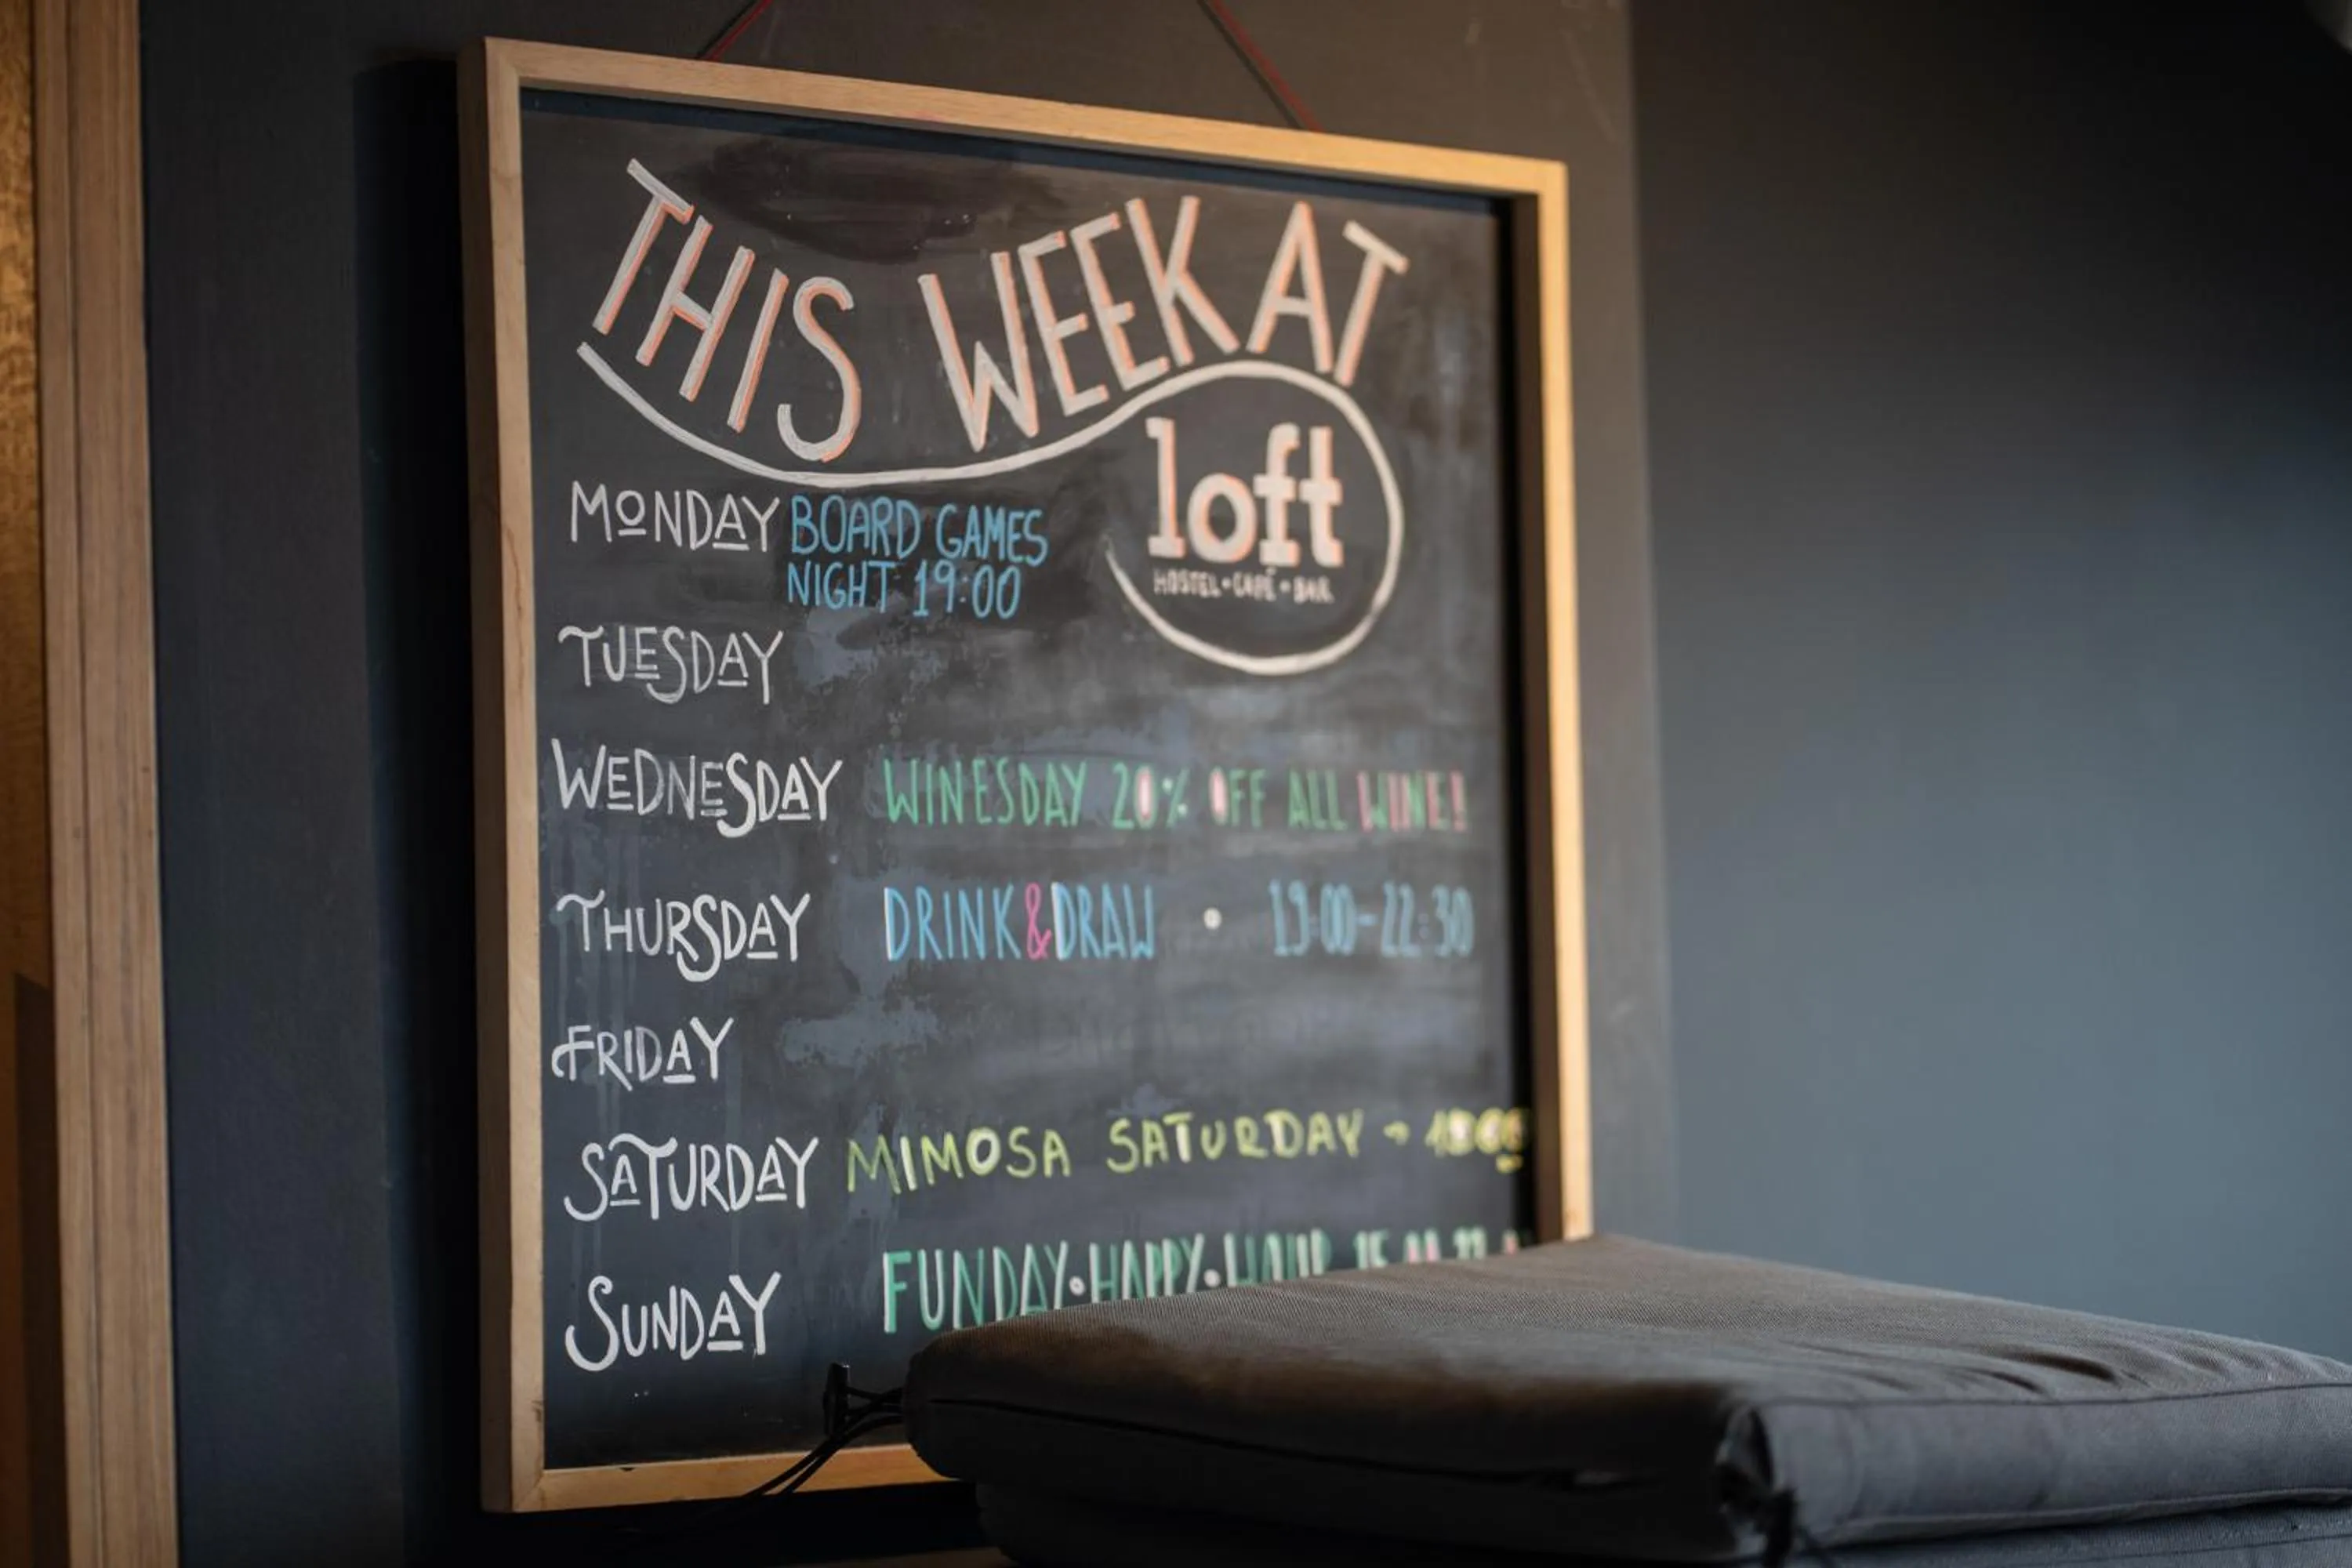 THIS WEEK AT
loft
HOSTEL • CAFÉ • BAR
MONDAY BOARD GAMES
NIGHT 19:00
TUESDAY
WEDNESDAY WINESDAY 20% OFF ALL WINE!
THURSDAY DRINK & DRAW • 19:00-22:30
FRIDAY
SATURDAY MIMOSA SATURDAY -
SUNDAY FUNDAY • HAPPY • HOUR